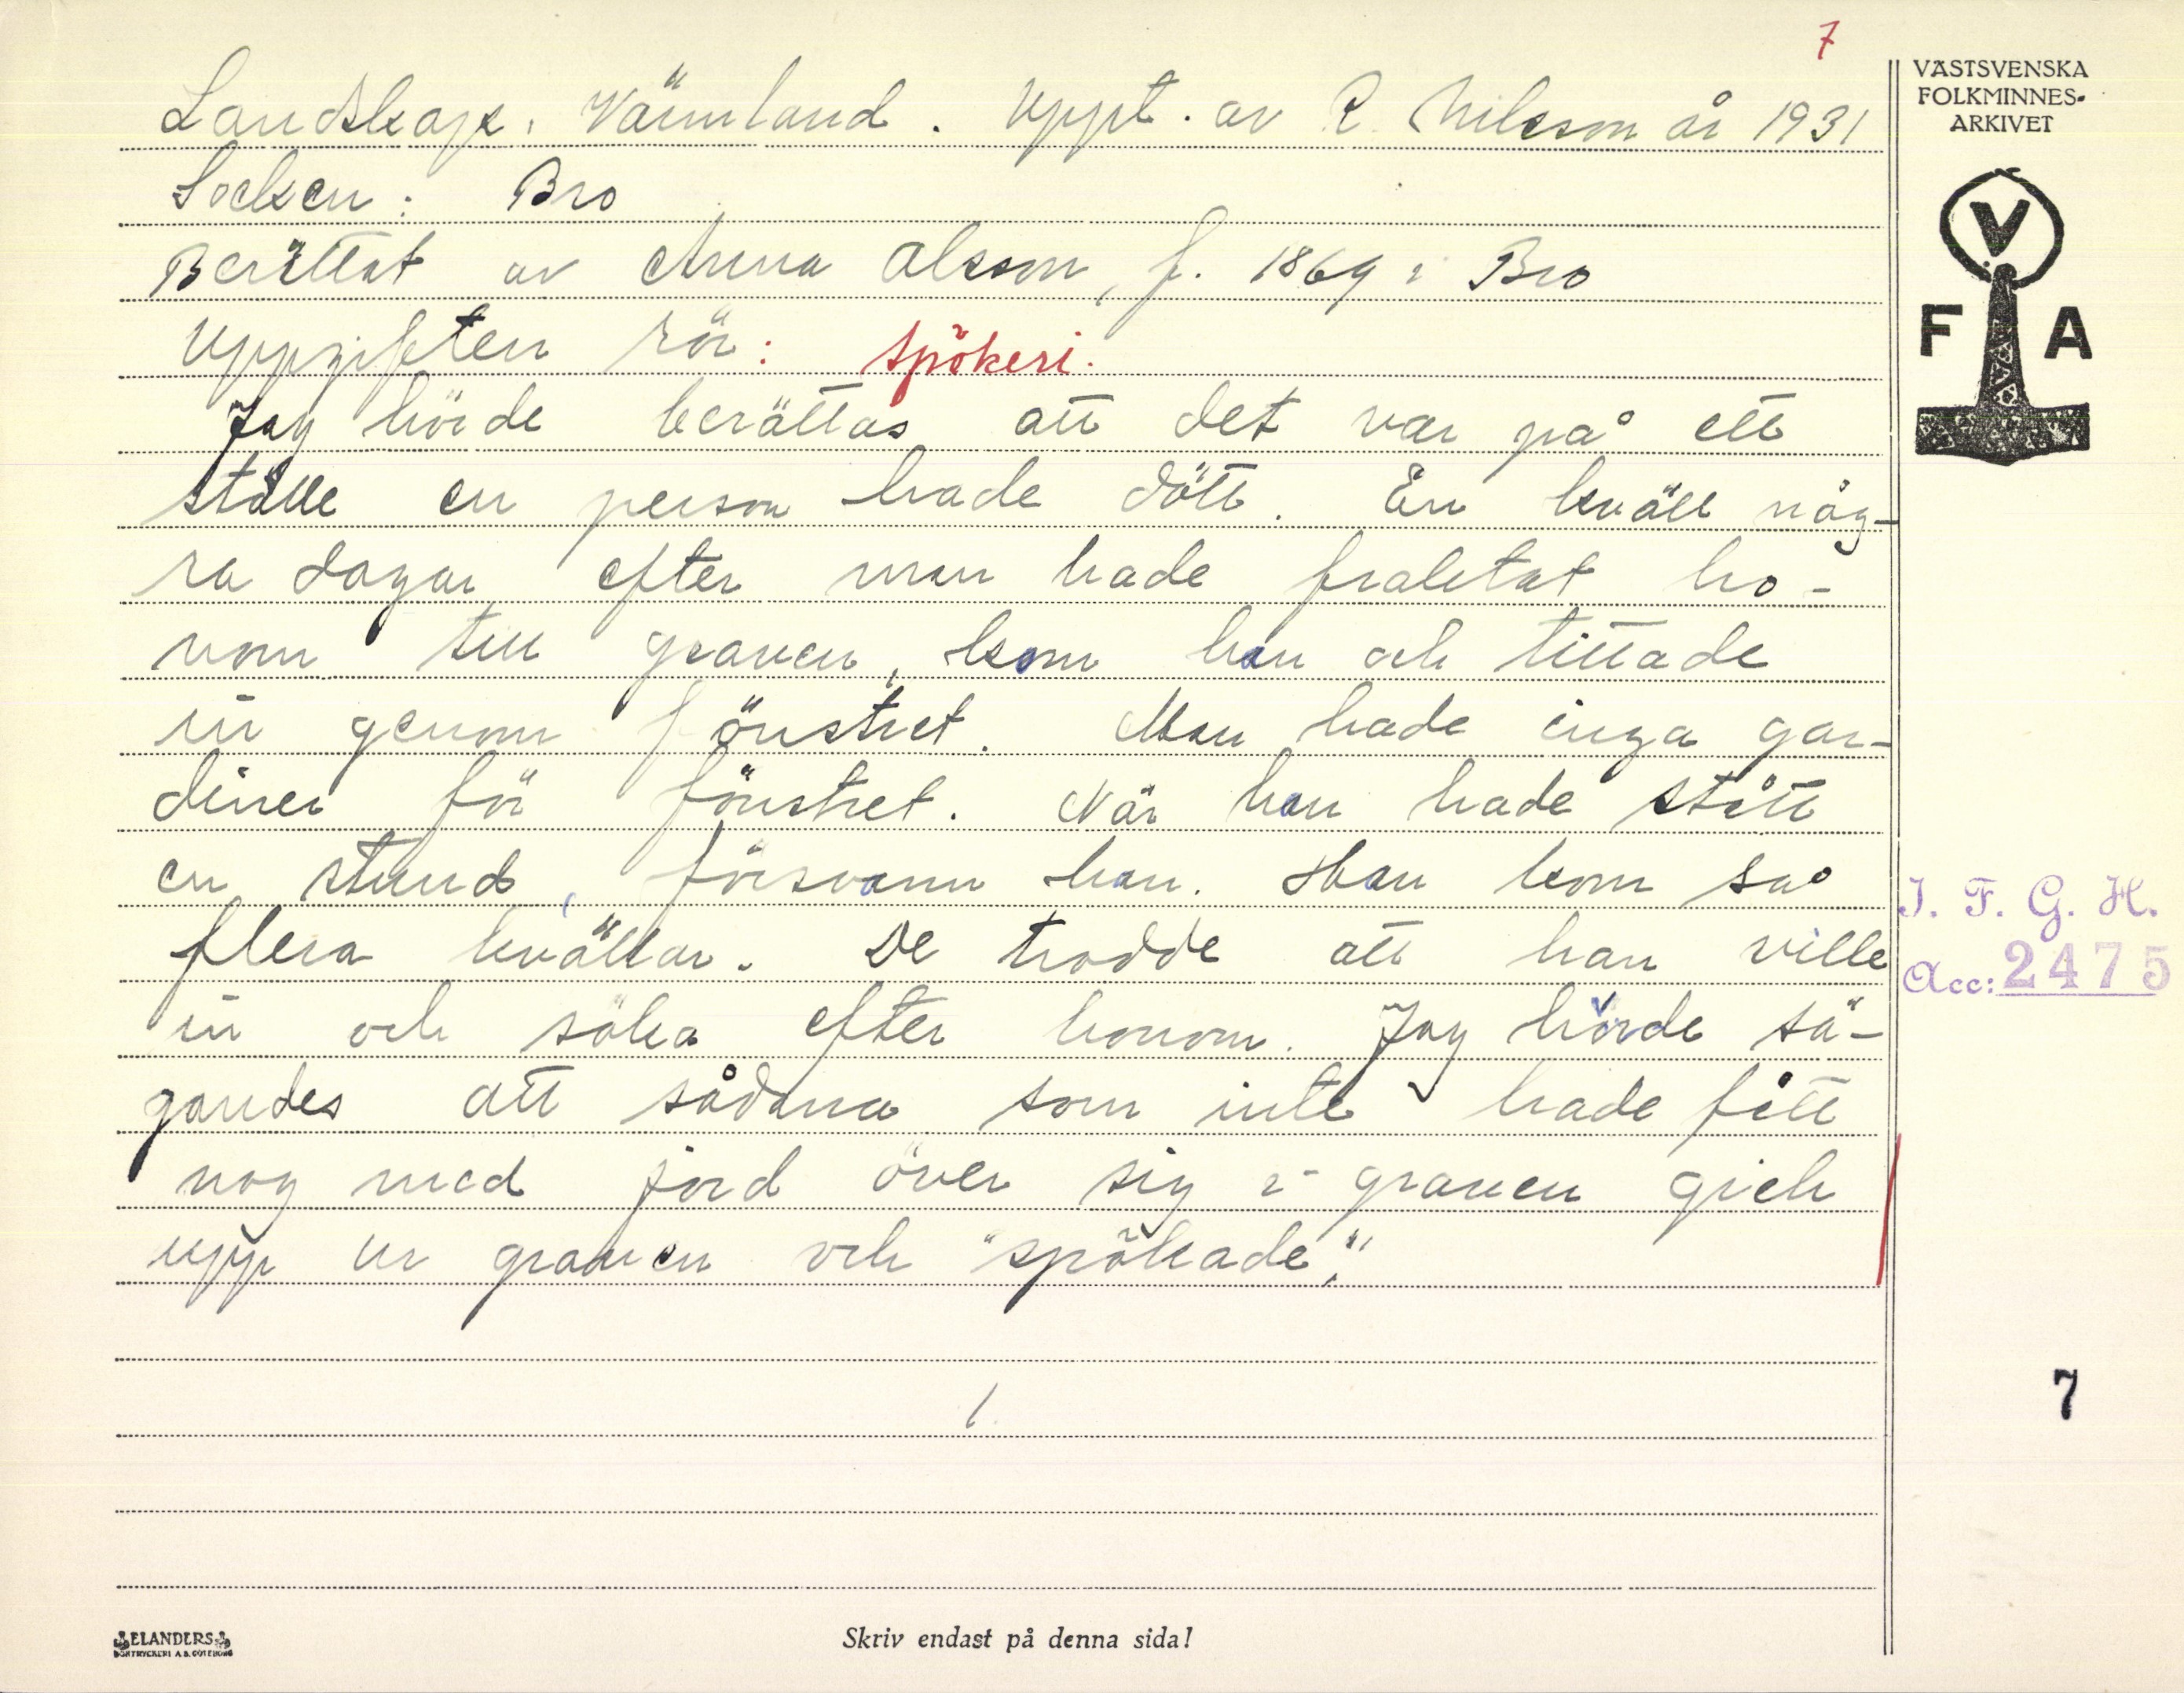 7
Landskap: Värmland. Uppt. av R. Nilsson år 1931
Socken: Bro
Berättat av Anna Olsson, f. 1869 i Bro
Uppgiften rör: spökeri.
Jag hörde berättas att det var på ett
ställe en person hade dött. En kväll någ-
ra dagar efter man hade fraktat ho-
nom till graven, kom han och tittade
in genom fönstret. Man hade inga gar-
diner för fönstret. När han hade stått
en stund, försvann han. Han kom så
flera kvällar. De trodde att han ville
in och söka efter honom. Jag hörde sä-
gandes att sådana som inte hade fått
nog med jord över sig i graven gick
upp ur graven och "spökade."
1.
VÄSTSVENSKA
FOLKMINNES-
ARKIVET
V
F A
I. F. G. H.
Acc: 2475
7
ELANDERS
BOKTRYCKERI A.B. GÖTEBORG
Skriv endast på denna sida!